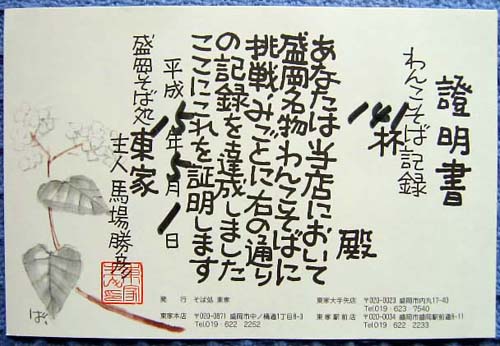 證明書
わんこそば記録
141杯
殿
あなたは当店において
盛岡名物わんこそばに
挑戦、みごとに右の通り
の記録を達成しました
ここにこれを証明します
平成15年5月1日
盛岡そば処 東家
主人 馬場勝彦
ば、
発行 そば処 東家
東家本店 〒020-0871 盛岡市中ノ橋通1丁目8-3
Tel.019-622-2252
東家大手先店 〒020-0023 盛岡市内丸17-43
Tel.019-623-7540
東家駅前店 〒020-0034 盛岡市盛岡駅前通8-11
Tel.019-622-2233